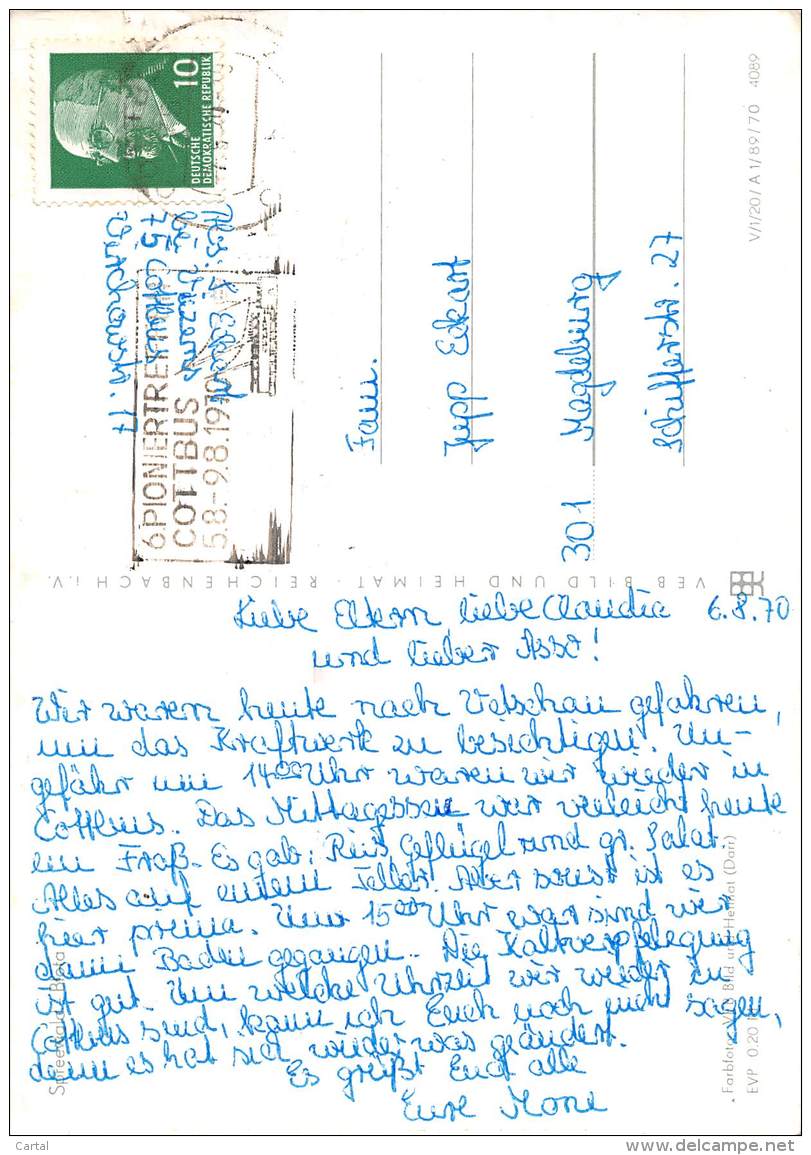 10
DEUTSCHE
DEMOKRATISCHE REPUBLIK
6. PIONIERTREFFEN
COTTBUS
5.8.-9.8.1970
Abs.: Eckart
bei
75 Cottbus
17
Fam.
Jupp Eckart
301 Magdeburg
Schifferstr. 27
V/1/20/ A 1/89/70 4089
VEB BILD UND HEIMAT · REICHENBACH i. V.
6.8.70
Liebe Eltern, liebe Claudia
und lieber Asso!
Wir waren heute nach Vetschau gefahren,
um das Kraftwerk zu besichtigen. Un-
gefähr um 14⁰⁰ Uhr waren wir wieder in
Cottbus. Das Mittagessen war vieleicht heute
ein Fraß. Es gab: Reis, Geflügel und gr. Salat.
Alles auf einem Teller. Aber sonst ist es
hier prima. Um 15⁰⁰ Uhr sind wir
dann Baden gegangen. Die Kaltverpflegung
ist gut. Um welche Uhrzeit wir wieder in
Cottbus sind, kann ich Euch noch nicht sagen,
denn es hat sich wieder was geändert.
Es grüßt Euch alle
Eure Moni
Farbfoto: VEB Bild und Heimat (Darr)
EVP 0.20
Cartal
www.delcampe.net